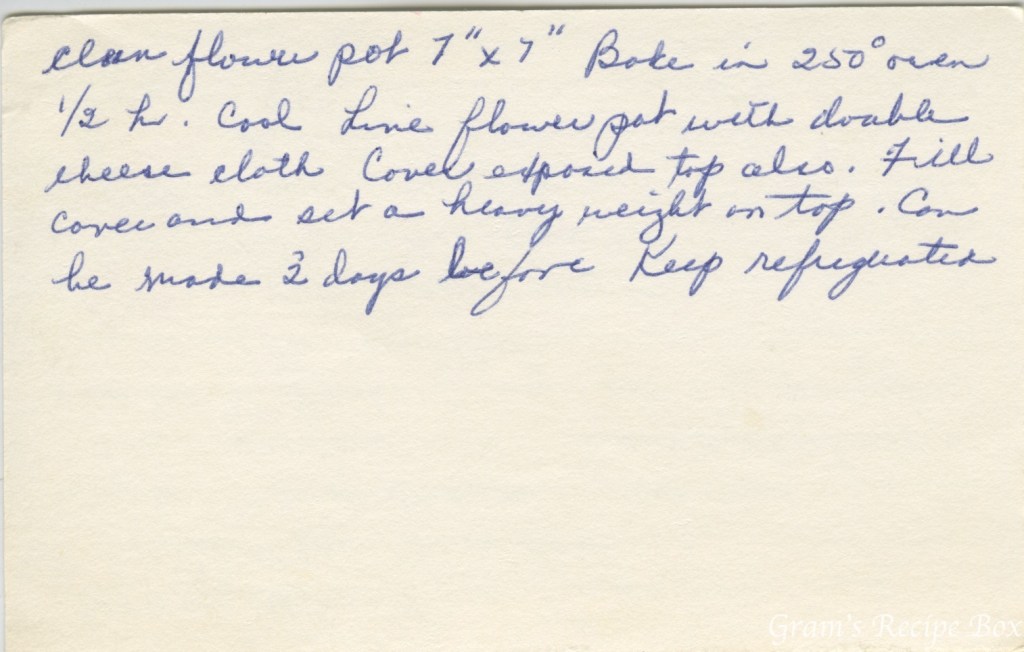 clean flower pot 7" x 7" Bake in 250° oven
1/2 hr. Cool Line flower pot with double
cheese cloth Cover exposed top also. Fill
cover and set a heavy weight on top. Can
be made 2 days before Keep refrigerated
Gram's Recipe Box